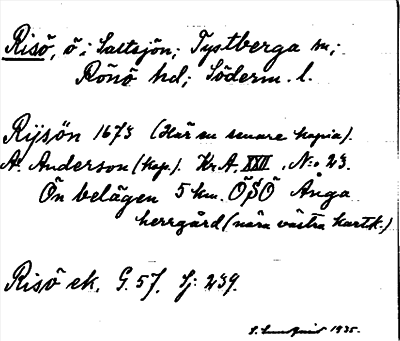 Risö, ö; Saltsjön; Tystberga sn;
Rönö hd; Söderm. l.
Rijsön 1673 (Här en senare kopia).
A. Anderson (kop.). Kr.A. XXII. N:o 23.
Ön belägen 5 km. ÖSÖ Ånga
herrgård (nära västra kartk.)
Risö ek. G. 57. Sj: 239.
1935.